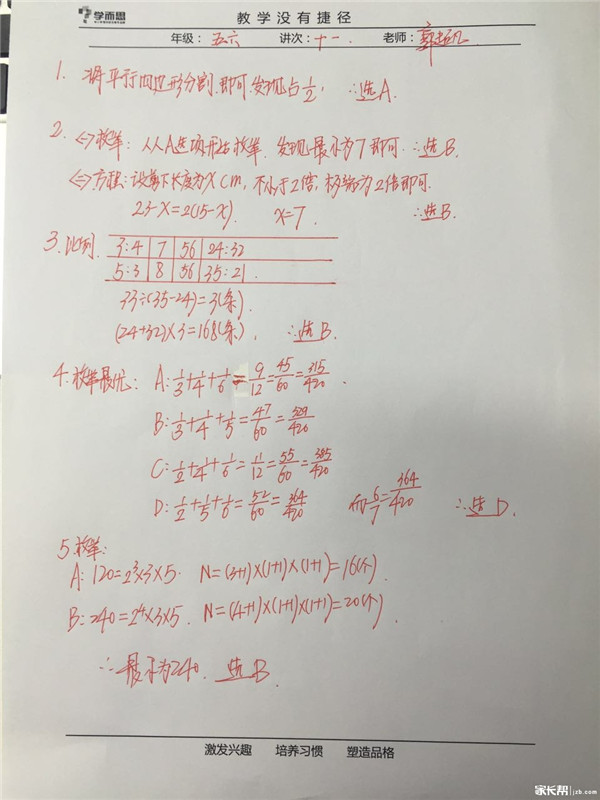 学而思
教学没有捷径
年级: 五六 讲次: 十一 老师:
1. 将平行四边形分割,即可发现占1/2, ∴选A.
2. <1>枚举: 从A选项开始枚举, 发现最小为7即可. ∴选B.
<2>方程: 设剪下长度为x cm, 不小于2倍, 极端为2倍即可.
23-x=2(15-x). x=7. ∴选B.
3. 比例
3:4 7 56 24:32
5:3 8 56 35:21.
33÷(35-24)=3(条).
(24+32)×3=168(条). ∴选B.
4. 枚举最优: A: 1/3+1/4+1/6=9/12=45/60=315/420.
B: 1/3+1/4+1/5=47/60=329/420
C: 1/2+1/4+1/6=11/12=55/60=385/420
D: 1/2+1/5+1/6=52/60=364/420 而6/7=364/420 ∴选D.
5. 枚举:
A: 120=2³×3×5. N=(3+1)×(1+1)×(1+1)=16(个)
B: 240=2⁴×3×5. N=(4+1)×(1+1)×(1+1)=20(个).
∴最小为240. 选B.
激发兴趣 培养习惯 塑造品格
家长帮 jzb.com